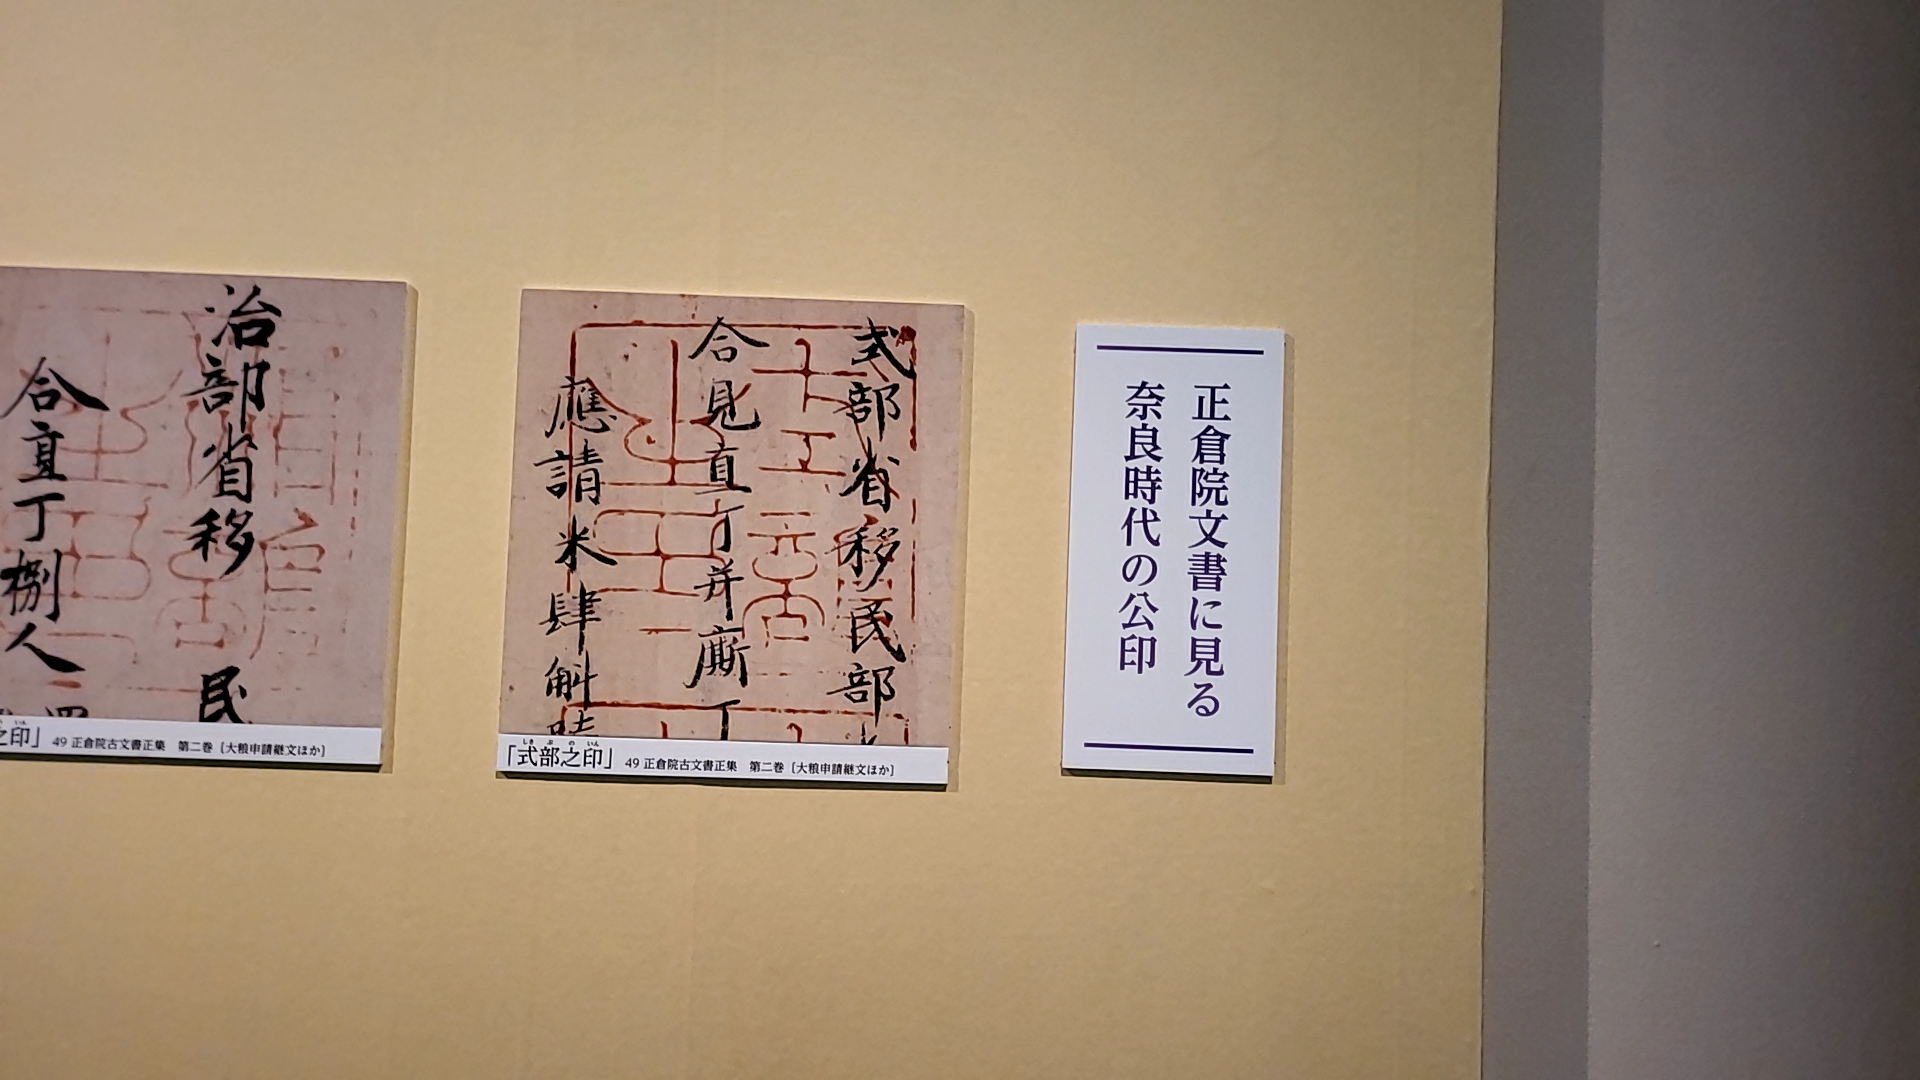 正倉院文書に見る
奈良時代の公印
式部省移民部
合見直丁并廝丁
應請米肆斛
「式部之印」 49 正倉院古文書正集 第二巻〔大粮申請継文ほか〕
治部省移 民
合直丁捌人
之印」 49 正倉院古文書正集 第二巻〔大粮申請継文ほか〕